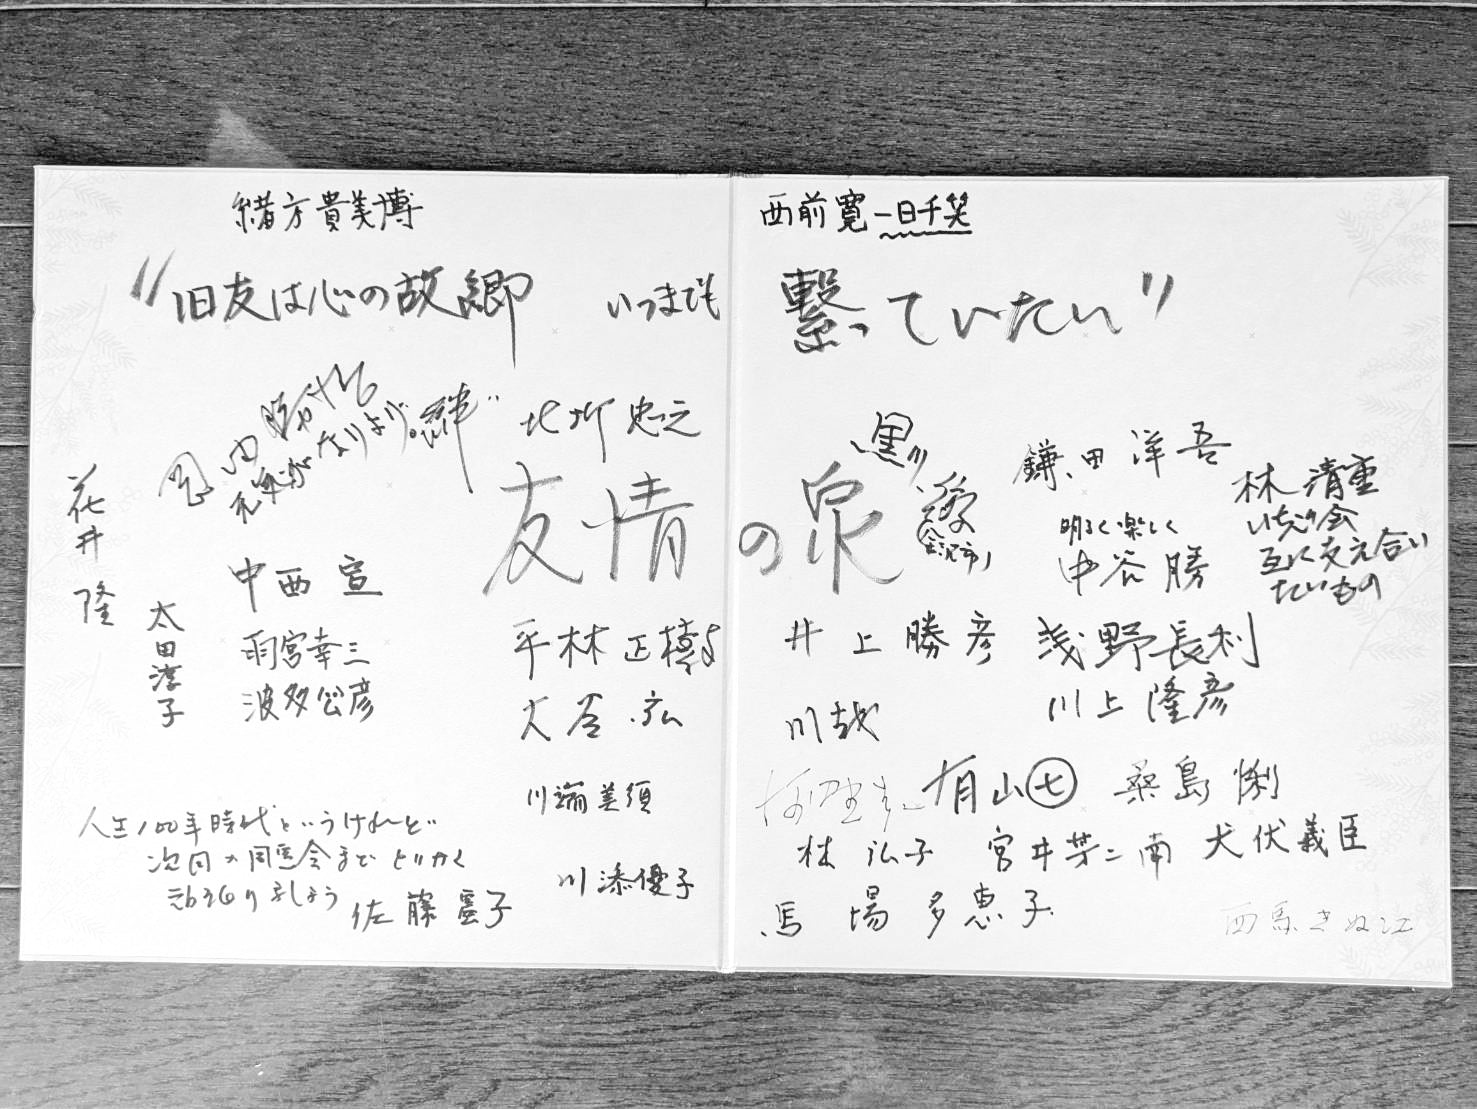 緒方貴美博
"旧友は心の故郷 いつまでも
北川 忠之
花井 隆
友情
中西 宣
太田淳子
雨宮幸三
波多公彦
平林正樹
大谷 弘
川端美須
川添優子
人生100年時代というけれど
次回の同窓会まで とりあえず
頑張りましょう
佐藤 子
西前寛 一日千笑
繋っていたい"
の泉
黒川 愛
(金沢市)
鎌田洋吾
林 清重
いちの会
互に支え合い
たいもの
明るく楽しく
中谷 勝
井上勝彦
浅野長利
川上隆彦
川哉
有山七
桑島 悧
林 弘子
宮井芳二南
犬伏義臣
馬場多恵子
西馬きぬ江